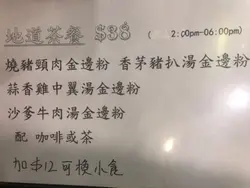 地道茶餐 $38 (2:00pm-06:00pm)
燒豬頸肉金邊粉 香茅豬扒湯金邊粉
蒜香雞中翼湯金邊粉
沙爹牛肉湯金邊粉
配 咖啡或茶
加$12可換小食